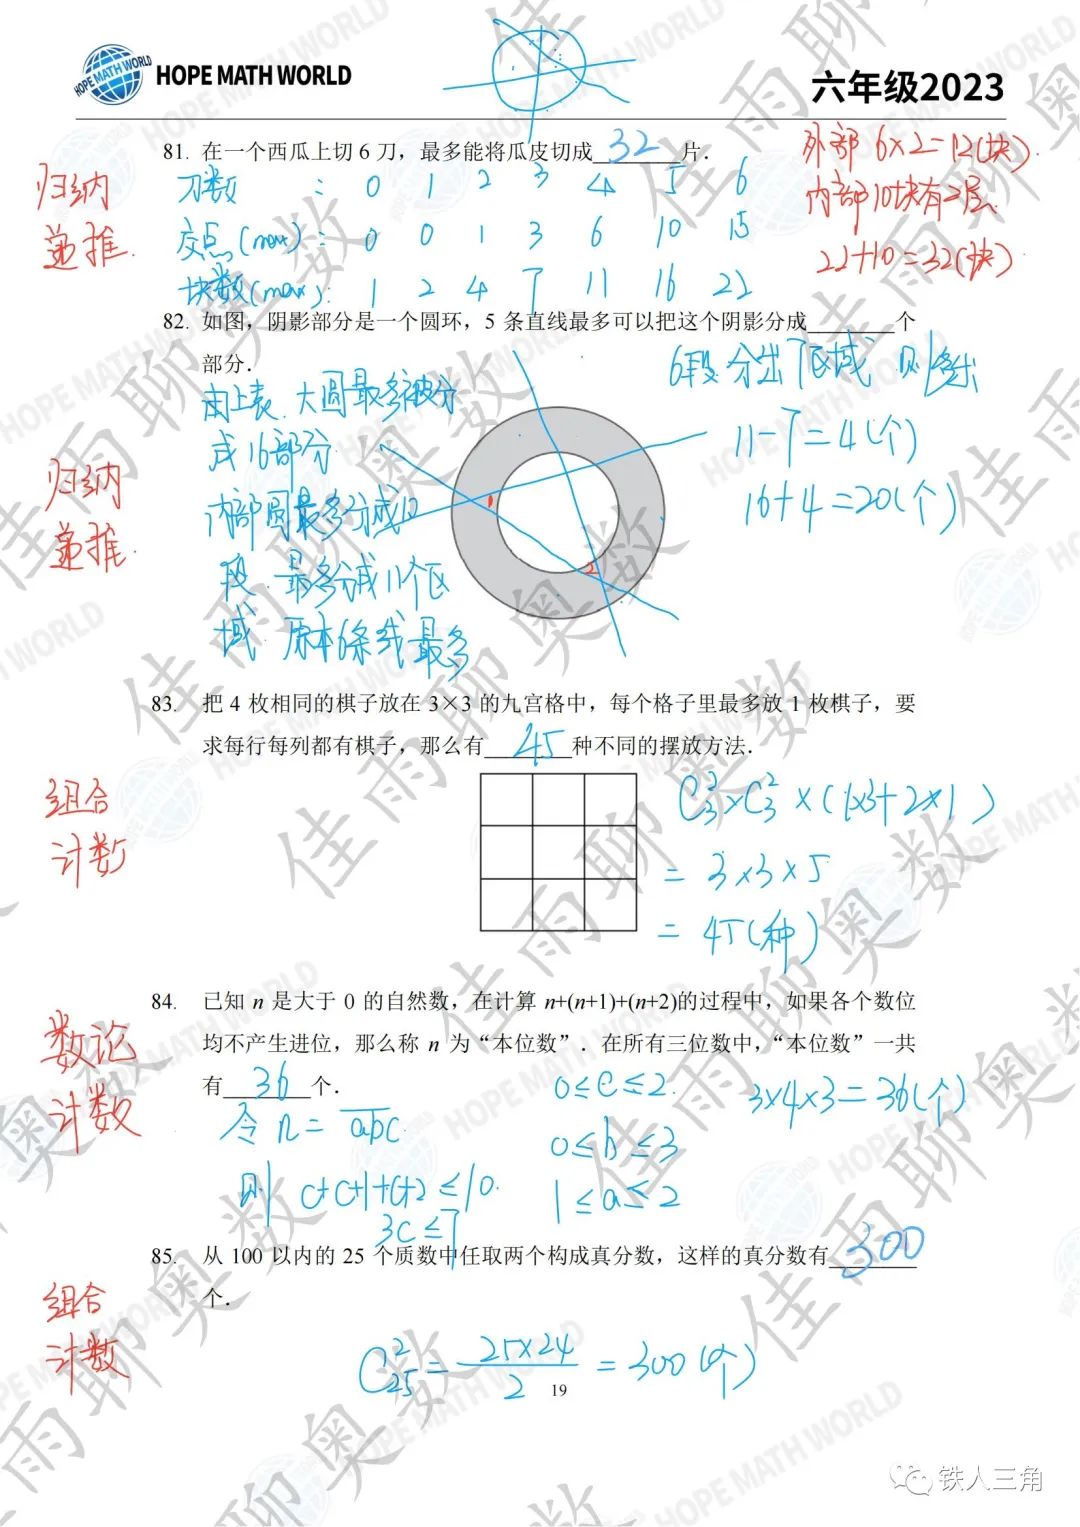 HOPE MATH WORLD
六年级2023
81. 在一个西瓜上切 6 刀，最多能将瓜皮切成 32 片．
外部 6×2=12(块)
内部10块有2层
22+10=32(块)
归纳
递推
刀数 : 0 1 2 3 4 5 6
交点(max): 0 0 1 3 6 10 15
块数(max): 1 2 4 7 11 16 22
82. 如图，阴影部分是一个圆环，5 条直线最多可以把这个阴影分成________个
部分．
由上表 大圆最多被分
成16部分
内部圆最多分成
段 最多分成11个区
域 原本6条线最多
6段分出7区域 则多出
11-7=4(个)
16+4=20(个)
归纳
递推
1
2
83. 把 4 枚相同的棋子放在 3×3 的九宫格中，每个格子里最多放 1 枚棋子，要
求每行每列都有棋子，那么有 45 种不同的摆放方法．
组合
计数
×(1×3+2×1)
= 3×3×5
= 45(种)
84. 已知 n 是大于 0 的自然数，在计算 n+(n+1)+(n+2)的过程中，如果各个数位
均不产生进位，那么称 n 为“本位数”．在所有三位数中，“本位数”一共
有 36 个．
数论
计数
令 n= abc
则 c+c+1+c+2≤10
3c≤7
0≤c≤2
0≤b≤3
1≤a≤2
3×4×3=36(个)
85. 从 100 以内的 25 个质数中任取两个构成真分数，这样的真分数有 300
个．
组合
计数
C²₂₅= 25×24/2 =300(个)
19
铁人三角
佳雨聊奥数